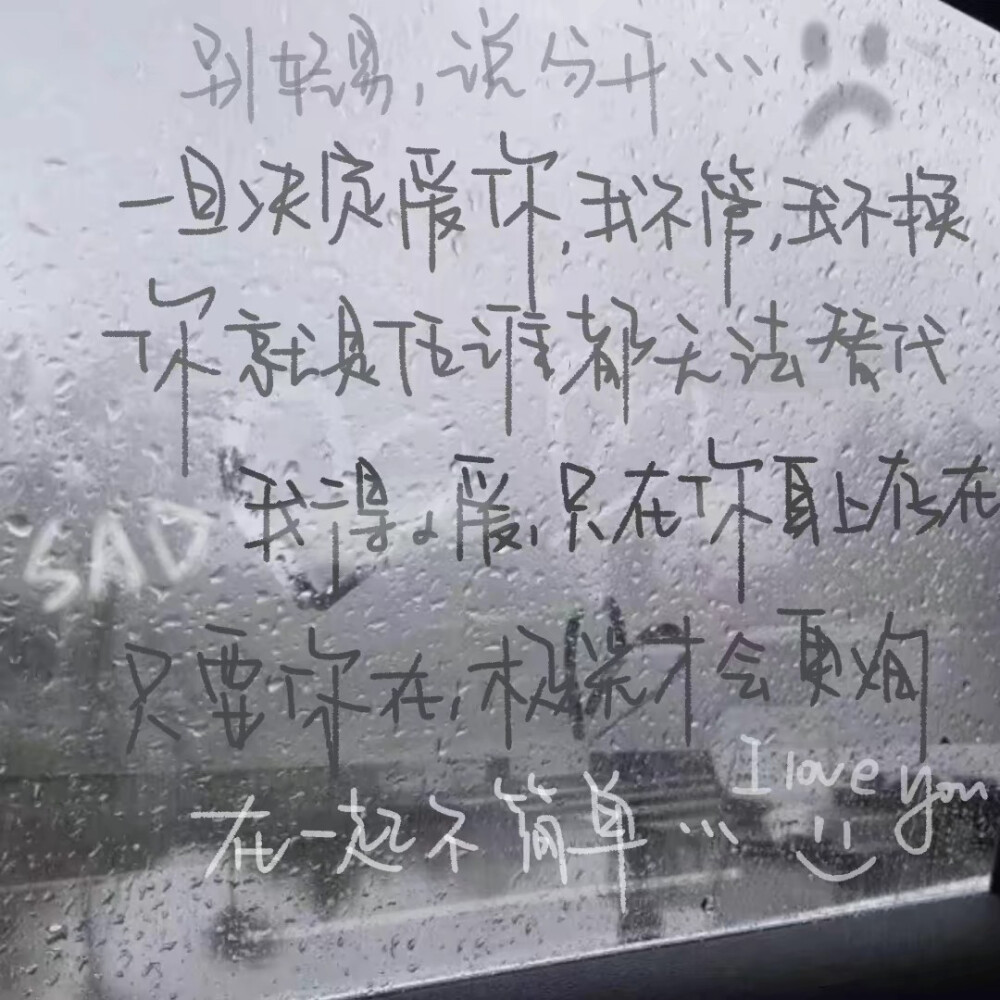 别轻易,说分开...
一旦决定爱你,我不管,我不换
你就是任谁都无法替代
我得爱,只在你身上存在
SAD
只要你在,才会更
I love you
在一起不简单...